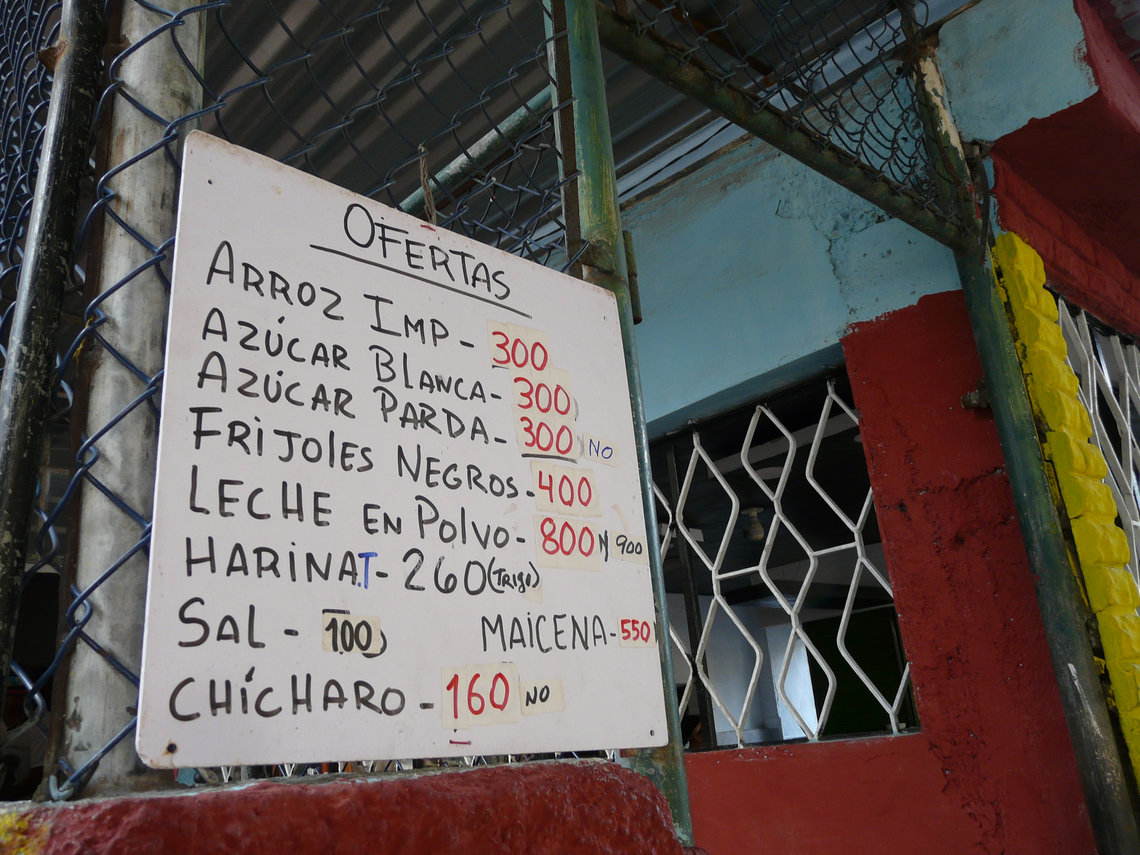 OFERTAS
ARROZ IMP - 300
AZÚCAR BLANCA - 300
AZÚCAR PARDA - 300 NO
FRIJOLES NEGROS - 400
LECHE EN POLVO - 800 y 900
HARINA.T - 260 (TRIGO)
SAL - 100 MAICENA - 550
CHÍCHARO - 160 NO